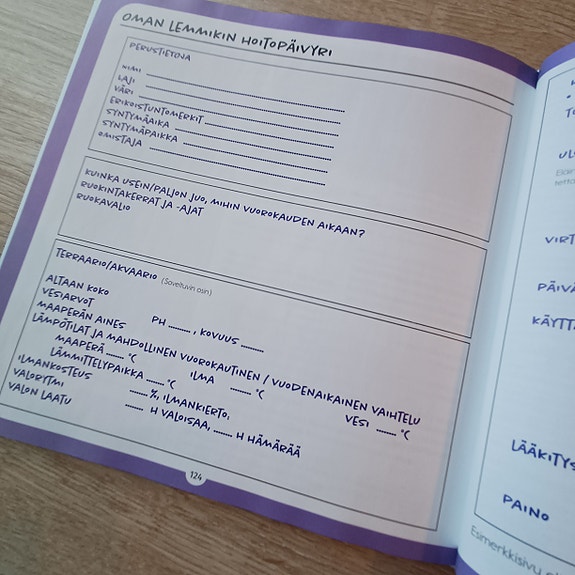 OMAN LEMMIKIN HOITOPÄIVYRI
PERUSTIETOJA
NIMI
LAJI
VÄRI
ERIKOISTUNTOMERKIT
SYNTYMÄAIKA
SYNTYMÄPAIKKA
OMISTAJA
KUINKA USEIN/PALJON JUO, MIHIN VUOROKAUDEN AIKAAN?
RUOKINTAKERRAT JA -AJAT
RUOKAVALIO
TERRAARIO/AKVAARIO (Soveltuvin osin)
ALTAAN KOKO
VESIARVOT PH ........, KOVUUS ........
MAAPERÄN AINES
LÄMPÖTILAT JA MAHDOLLINEN VUOROKAUTINEN / VUODENAIKAINEN VAIHTELU
MAAPERÄ ........ °C ILMA ........ °C VESI ........ °C
LÄMMITTELYPAIKKA ........ °C
ILMANKOSTEUS ........ %, ILMANKIERTO,
VALORYTMI ........ H VALOISAA, ........ H HÄMÄRÄÄ
VALON LAATU
124
VIRT
PÄIVÄ
KÄYTT
LÄÄKITYS
PAINO
Esimerkkisivu